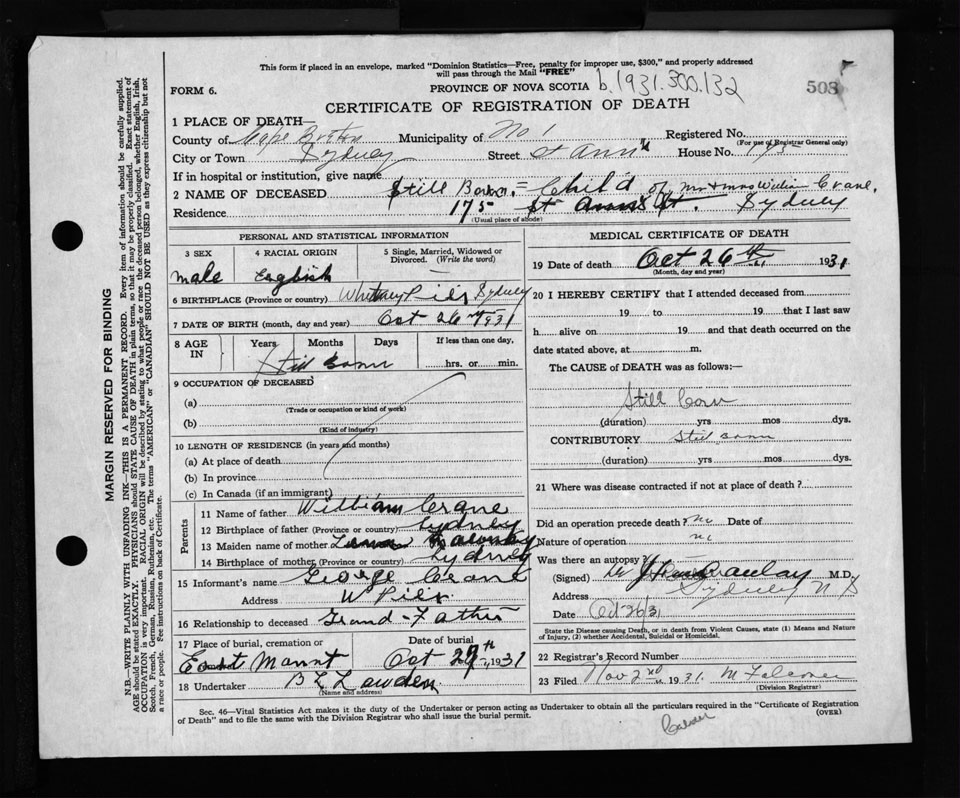 This form if placed in an envelope, marked "Dominion Statistics—Free, penalty for improper use, $300," and properly addressed
will pass through the Mail "FREE"
FORM 6.
PROVINCE OF NOVA SCOTIA
b.1931.300.132
508
CERTIFICATE OF REGISTRATION OF DEATH
1 PLACE OF DEATH—
County of Cape Breton Municipality of No 1 Registered No.
(For use of Registrar General only)
City or Town Sydney Street St Ann's House No. 175
If in hospital or institution, give name
2 NAME OF DECEASED Still Born = Child of Mr & Mrs William Crane,
Residence 175 St Anns St. Sydney
(Usual place of abode)
PERSONAL AND STATISTICAL INFORMATION
3 SEX 4 RACIAL ORIGIN 5 Single, Married, Widowed or Divorced. (Write the word)
male English —
6 BIRTHPLACE (Province or country) Whitney Pier Sydney
7 DATE OF BIRTH (month, day and year) Oct 26th 1931
8 AGE IN Years Months Days If less than one day,
Still Born hrs. or min.
9 OCCUPATION OF DECEASED
(a)
(Trade or occupation or kind of work)
(b)
(Kind of industry)
10 LENGTH OF RESIDENCE (in years and months)
(a) At place of death
(b) In province
(c) In Canada (if an immigrant)
Parents
11 Name of father William Crane
12 Birthplace of father (Province or country) Sydney
13 Maiden name of mother
14 Birthplace of mother (Province or country) Sydney
15 Informant's name George Crane
Address W Pier
16 Relationship to deceased Grand-Father
17 Place of burial, cremation or Date of burial
Mount Oct 29th, 1931
18 Undertaker B L
(Name and address)
MEDICAL CERTIFICATE OF DEATH
19 Date of death Oct 26th 1931
(Month, day and year)
20 I HEREBY CERTIFY that I attended deceased from
19 to 19 that I last saw
h alive on 19 and that death occurred on the
date stated above, at m.
The CAUSE of DEATH was as follows:—
Still born
(duration) yrs mos dys.
CONTRIBUTORY Still born
(duration) yrs mos dys.
21 Where was disease contracted if not at place of death?
Did an operation precede death? no Date of
Nature of operation no
Was there an autopsy?
(Signed) M.D.
Address Sydney N S
Date Oct 26/31
State the Disease causing Death, or in death from Violent Causes, state (1) Means and Nature
of Injury, (2) whether Accidental, Suicidal or Homicidal.
22 Registrar's Record Number
23 Filed Nov 2nd 1931. M Falconer
(Division Registrar)
Sec. 46—Vital Statistics Act makes it the duty of the Undertaker or person acting as Undertaker to obtain all the particulars required in the "Certificate of Registration
of Death" and to file the same with the Division Registrar who shall issue the burial permit.
(OVER)
MARGIN RESERVED FOR BINDING
N.B.—WRITE PLAINLY WITH UNFADING INK—THIS IS A PERMANENT RECORD. Every item of information should be carefully supplied.
AGE should be stated EXACTLY. PHYSICIANS should STATE CAUSE OF DEATH in plain terms, so that it may be properly classified. Exact statement of
OCCUPATION is very important. RACIAL ORIGIN will be described by stating to what people or race the deceased person belonged, whether English, Irish,
Scotch, French, German, Russian, Ruthenian, etc. The terms "AMERICAN" or "CANADIAN" SHOULD NOT BE USED as they express citizenship but not
a race or people. See instructions on back of Certificate.